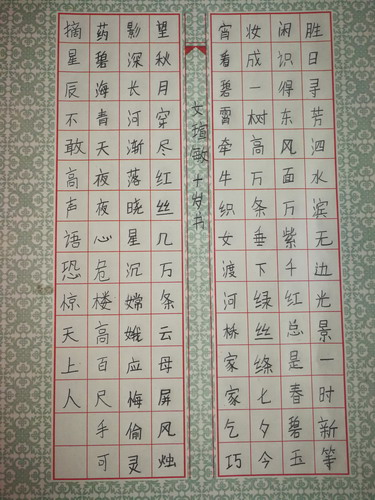 胜日寻芳泗水滨无边光景一时新等
闲识得东风面万紫千红总是春碧玉
妆成一树高万条垂下绿丝绦七夕今
宵看碧霄牵牛织女渡河桥家家乞巧
文瑄敏十岁书
望秋月穿尽红丝几万条云母屏风烛
影深长河渐落晓星沉嫦娥应悔偷灵
药碧海青天夜夜心危楼高百尺手可
摘星辰不敢高声语恐惊天上人